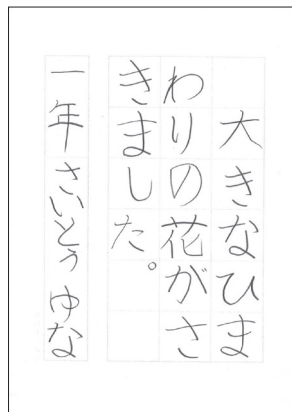 大きなひま
わりの花がさ
きました。
一年 さいとう ゆな